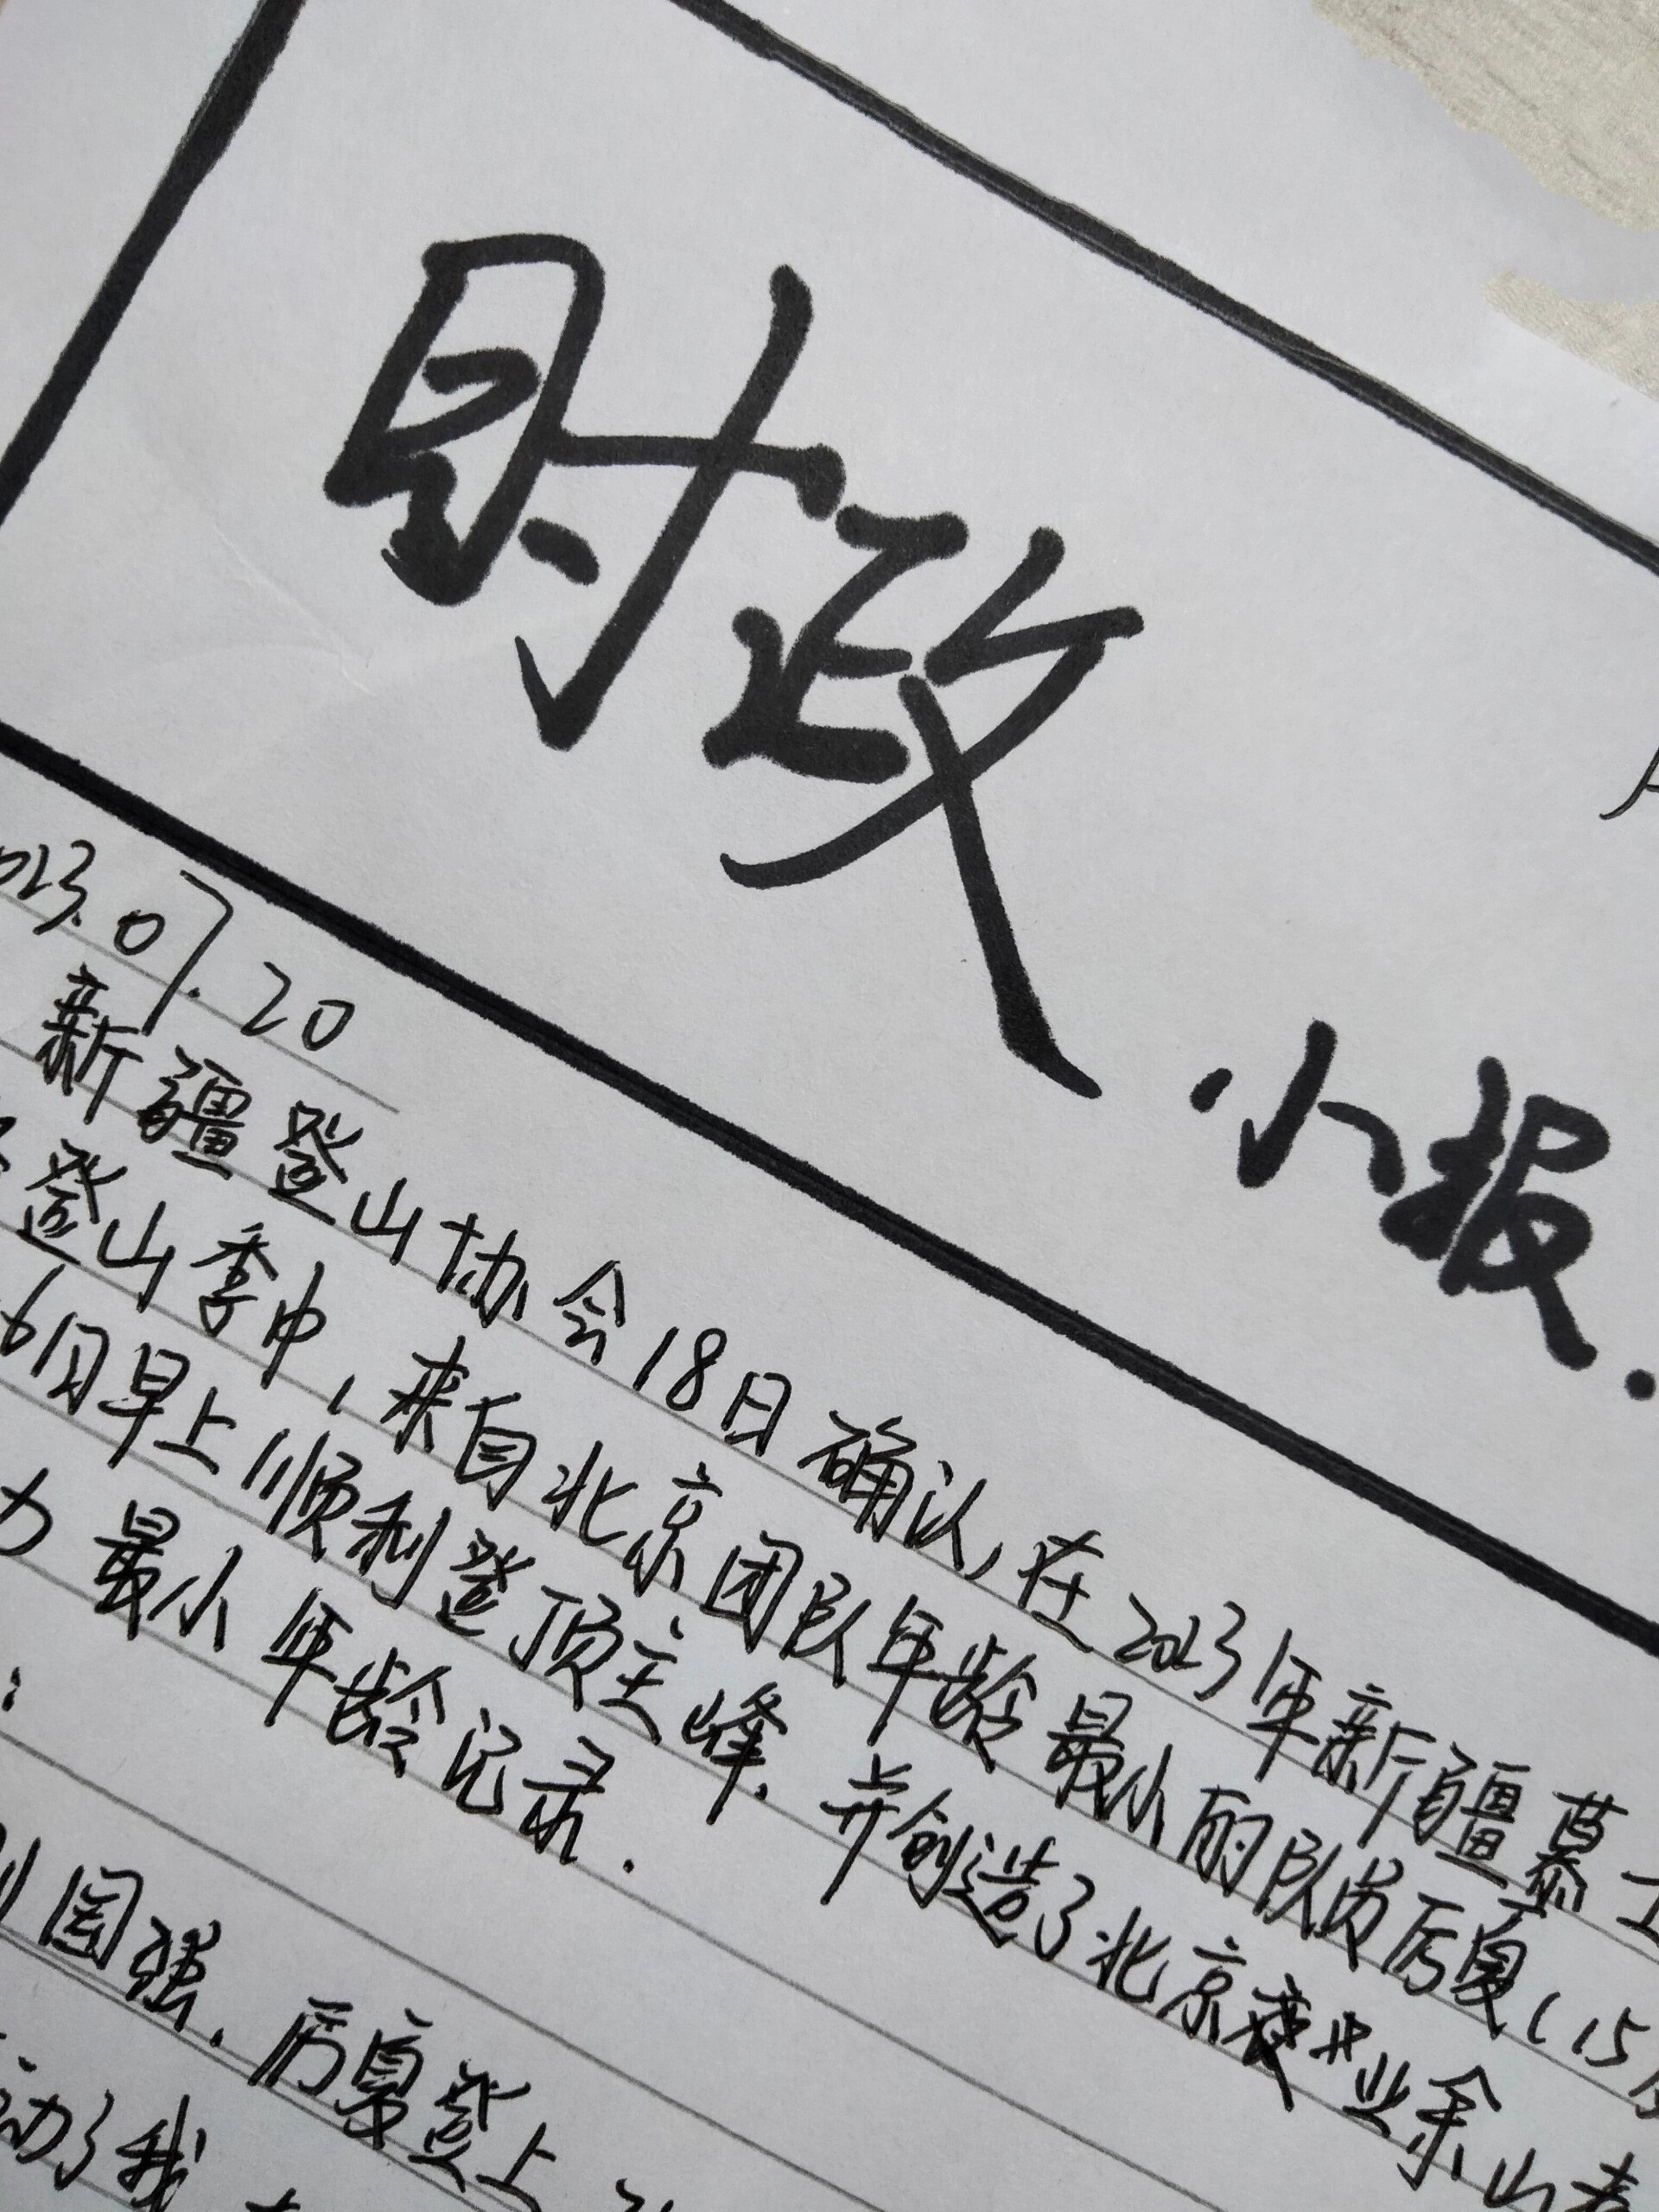 时政
小报.
023.07.20
新疆登山协会18日确认,在2023年新疆慕士
登山季中,来自北京团队年龄最小的队员厉夏(15
6月早上顺利登顶主峰.并创造了北京业余山
力最小年龄记录.
:
国强.厉夏登上
动了我